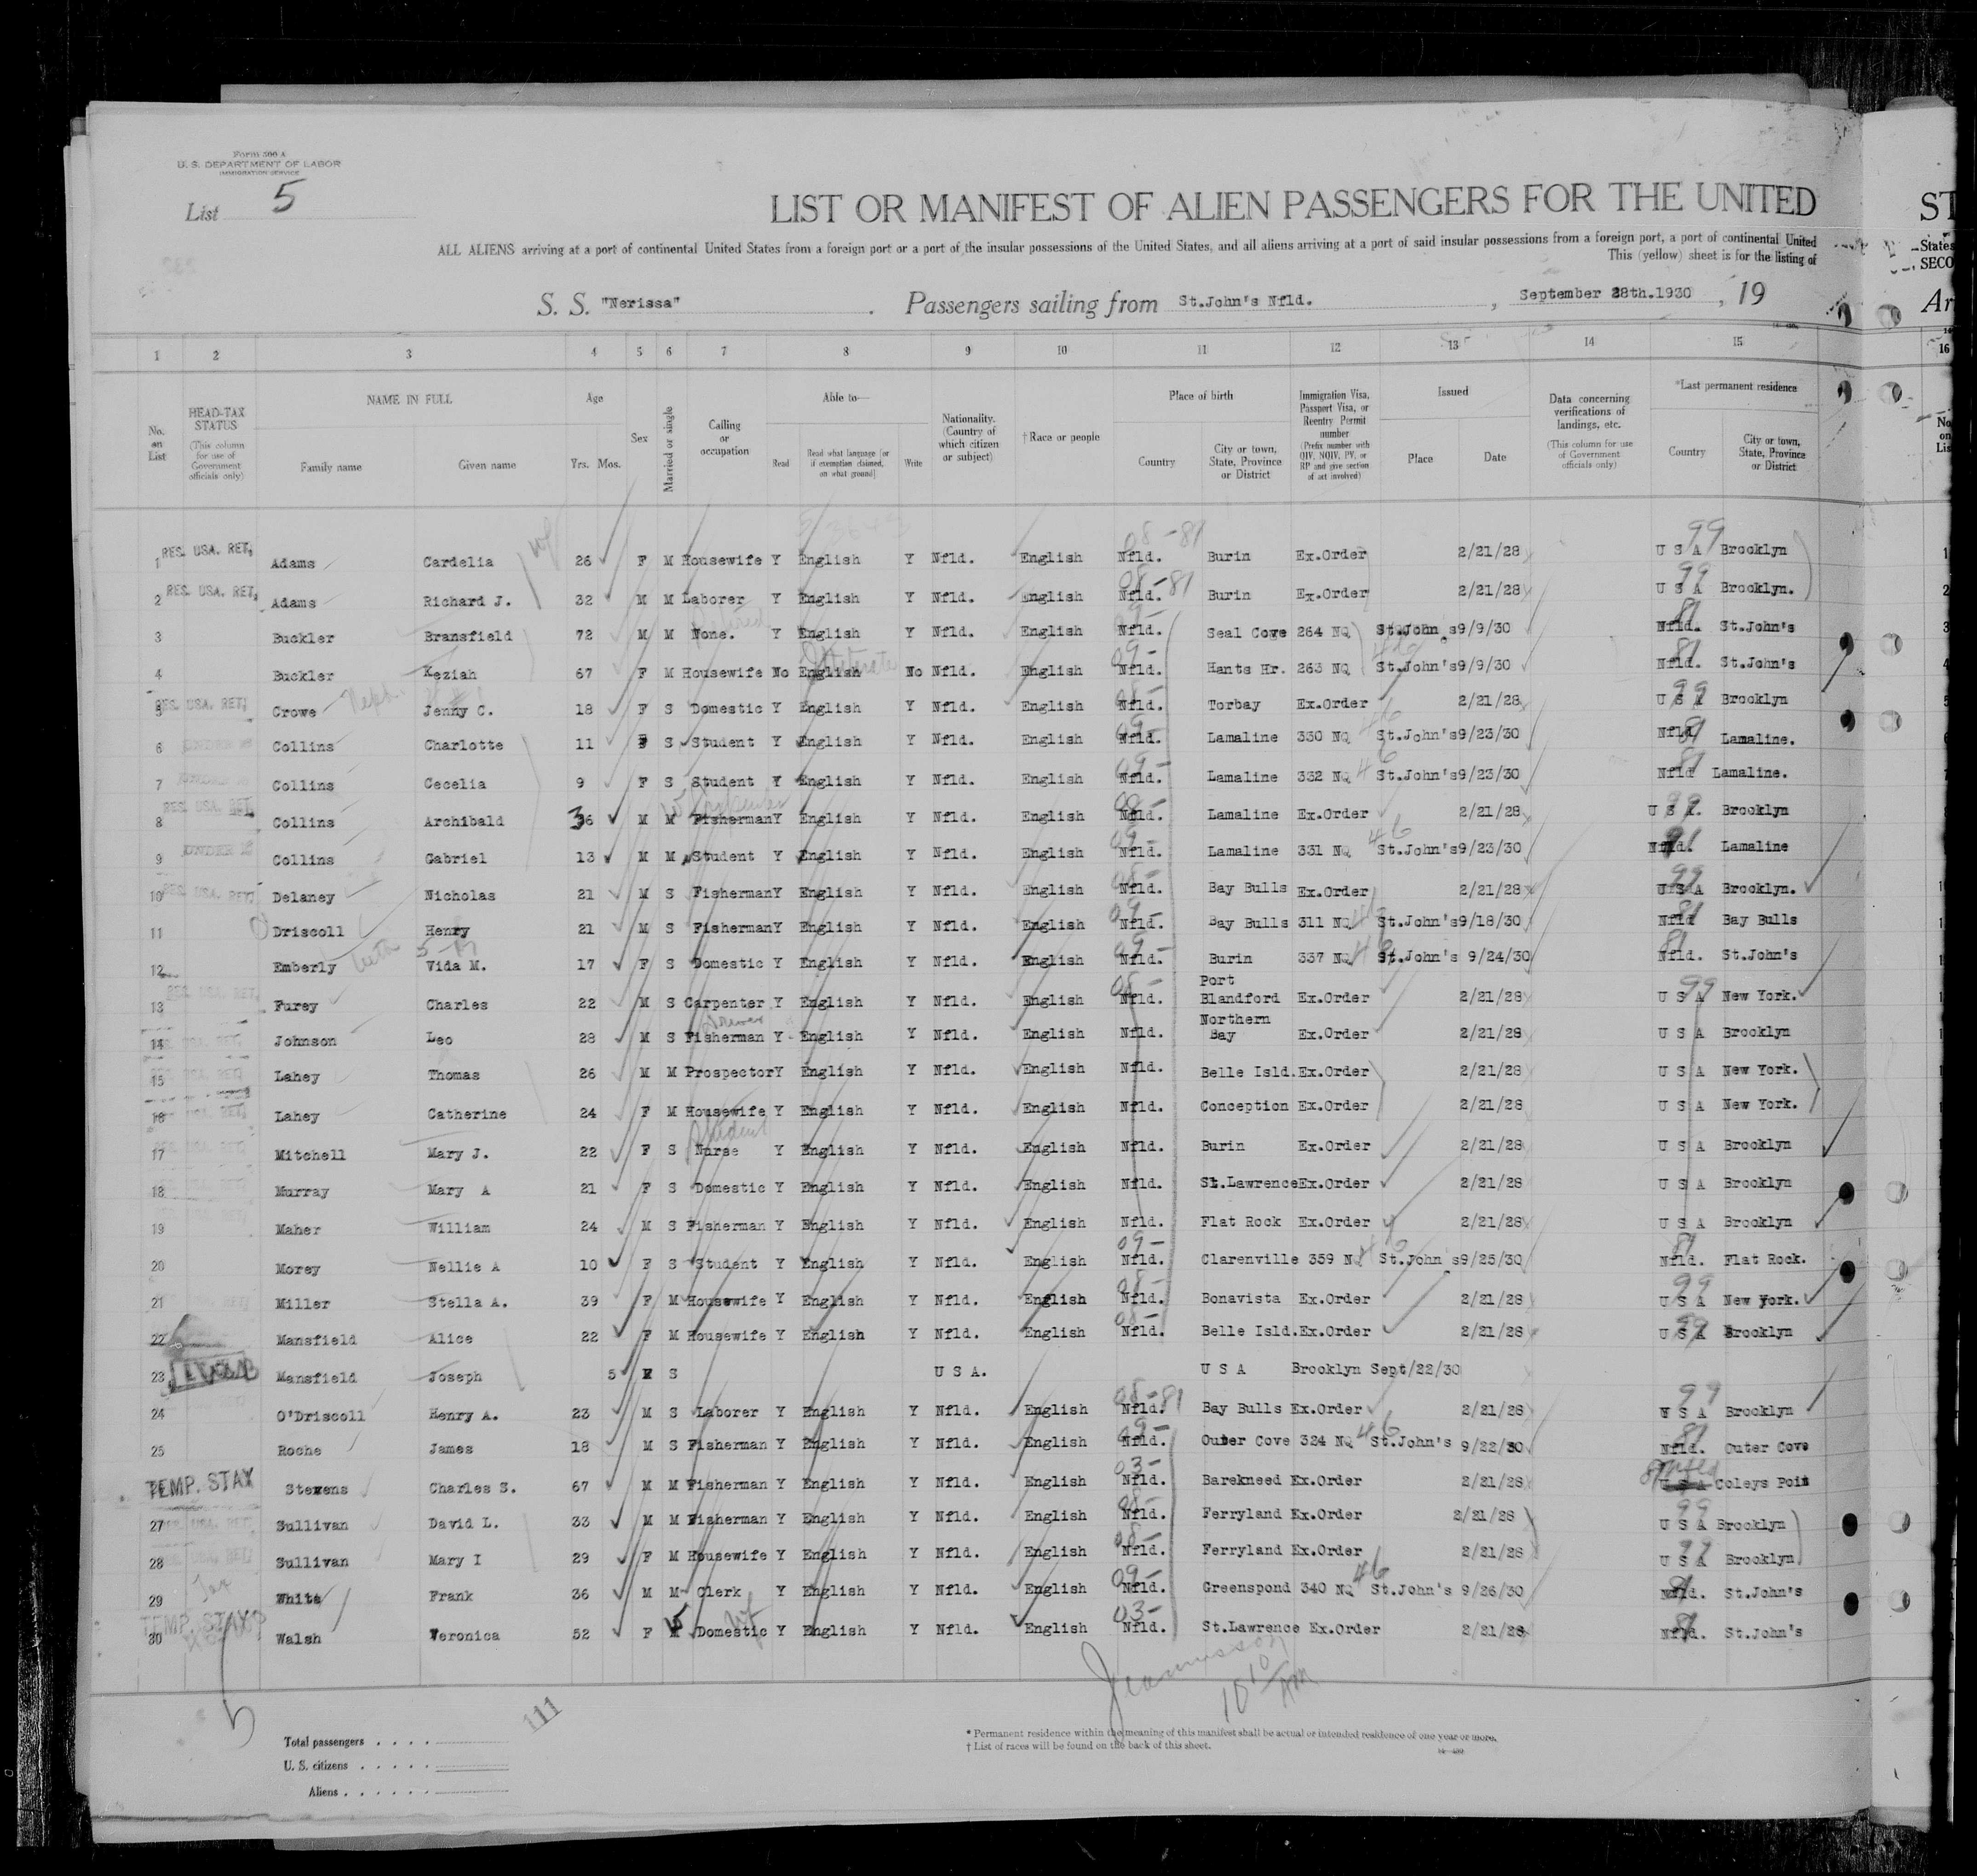 Form 500 A
U. S. DEPARTMENT OF LABOR
IMMIGRATION SERVICE
List 5
LIST OR MANIFEST OF ALIEN PASSENGERS FOR THE UNITED
ST
ALL ALIENS arriving at a port of continental United States from a foreign port or a port of the insular possessions of the United States, and all aliens arriving at a port of said insular possessions from a foreign port, a port of continental United
States
This (yellow) sheet is for the listing of
SECO
S. S. "Nerissa" . Passengers sailing from St.John's Nfld. , September 28th.1930 , 19
Ar
1 2 3 4 5 6 7 8 9 10 11 12 13 14 15 16
No. on List
HEAD-TAX STATUS (This column for use of Government officials only)
NAME IN FULL Family name Given name
Age Yrs. Mos.
Sex
Married or single
Calling or occupation
Able to— Read Read what language [or if exemption claimed, on what ground] Write
Nationality. (Country of which citizen or subject)
† Race or people
Place of birth Country City or town, State, Province or District
Immigration Visa, Passport Visa, or Reentry Permit number (Prefix number with QIV, NQIV, PV, or RP and give section of act involved)
Issued Place Date
Data concerning verifications of landings, etc. (This column for use of Government officials only)
*Last permanent residence Country City or town, State, Province or District
1 RES. USA. RET. Adams Cardelia wf 26 F M Housewife Y English Y Nfld. English 08-81 Nfld. Burin Ex.Order 2/21/28 99 U S A Brooklyn
2 RES. USA. RET. Adams Richard J. 32 M M Laborer Y English Y Nfld. English 08-81 Nfld. Burin Ex.Order 2/21/28 99 U S A Brooklyn.
3 Buckler Bransfield 72 M M None. Retired Y English Y Nfld. English 09- Nfld. Seal Cove 264 NQ St.John s 9/9/30 81 Nfld. St.John's
4 Buckler Keziah 67 F M Housewife No English No Nfld. English 09- Nfld. Hants Hr. 263 NQ 46 St.John's 9/9/30 81 Nfld. St.John's
5 RES. USA. RET. Crowe Jenny C. 18 F S Domestic Y English Y Nfld. English 08- Nfld. Torbay Ex.Order 2/21/28 99 U S A Brooklyn
6 UNDER 16 Collins Charlotte 11 F S Student Y English Y Nfld. English 09- Nfld. Lamaline 330 NQ 46 St.John's 9/23/30 81 Nfld Lamaline.
7 UNDER 16 Collins Cecelia 9 F S Student Y English Y Nfld. English 09- Nfld. Lamaline 332 NQ 46 St.John's 9/23/30 81 Nfld Lamaline.
8 RES. USA. RET. Collins Archibald 36 M M Fisherman Y English Y Nfld. English 08- Nfld. Lamaline Ex.Order 2/21/28 99 U S A. Brooklyn
9 UNDER 16 Collins Gabriel 13 M M Student Y English Y Nfld. English 09- Nfld. Lamaline 331 NQ 46 St.John's 9/23/30 Nfld. Lamaline
10 RES. USA. RET. Delaney Nicholas 21 M S Fisherman Y English Y Nfld. English 08- Nfld. Bay Bulls Ex.Order 2/21/28 99 U S A Brooklyn.
11 O' Driscoll Henry 21 M S Fisherman Y English Y Nfld. English 09- Nfld. Bay Bulls 311 NQ 46 St.John's 9/18/30 81 Nfld Bay Bulls
12 Emberly Vida M. 17 F S Domestic Y English Y Nfld. English 09- Nfld. Burin 337 NQ 46 St.John's 9/24/30 81 Nfld. St.John's
13 RES. USA. RET. Furey Charles 22 M S Carpenter Y English Y Nfld. English 08- Nfld. Port Blandford Ex.Order 2/21/28 99 U S A New York.
14 RES. USA. RET. Johnson Leo 28 M S Fisherman Y English Y Nfld. English Nfld. Northern Bay Ex.Order 2/21/28 U S A Brooklyn
15 RES. USA. RET. Lahey Thomas 26 M M Prospector Y English Y Nfld. English Nfld. Belle Isld. Ex.Order 2/21/28 U S A New York.
16 RES. USA. RET. Lahey Catherine 24 F M Housewife Y English Y Nfld. English Nfld. Conception Ex.Order 2/21/28 U S A New York.
17 RES. USA. RET. Mitchell Mary J. 22 F S Nurse Student Y English Y Nfld. English Nfld. Burin Ex.Order 2/21/28 U S A Brooklyn
18 Murray Mary A 21 F S Domestic Y English Y Nfld. English Nfld. St.Lawrence Ex.Order 2/21/28 U S A Brooklyn
19 Maher William 24 M S Fisherman Y English Y Nfld. English Nfld. Flat Rock Ex.Order 2/21/28 U S A Brooklyn
20 Morey Nellie A 10 F S Student Y English Y Nfld. English 09- Nfld. Clarenville 359 NQ 46 St.John s 9/25/30 81 Nfld. Flat Rock.
21 Miller Stella A. 39 F M Housewife Y English Y Nfld. English 08- Nfld. Bonavista Ex.Order 2/21/28 99 U S A New York.
22 Mansfield Alice 22 F M Housewife Y English Y Nfld. English 08- Nfld. Belle Isld. Ex.Order 2/21/28 99 U S A Brooklyn
23 Mansfield Joseph 5 M S U S A. U S A Brooklyn Sept/22/30
24 O'Driscoll Henry A. 23 M S Laborer Y English Y Nfld. English 08-81 Nfld. Bay Bulls Ex.Order 2/21/28 99 U S A Brooklyn
25 Roche James 18 M S Fisherman Y English Y Nfld. English 09- Nfld. Outer Cove 324 NQ 46 St.John's 9/22/30 81 Nfld. Outer Cove
TEMP. STAY Stevens Charles S. 67 M M Fisherman Y English Y Nfld. English 03- Nfld. Barekneed Ex.Order 2/21/28 81 Nfld U S A Coleys Poit
27 RES. USA. RET. Sullivan David L. 33 M M Fisherman Y English Y Nfld. English 08- Nfld. Ferryland Ex.Order 2/21/28 99 U S A Brooklyn
28 RES. USA. RET. Sullivan Mary I 29 F M Housewife Y English Y Nfld. English 08- Nfld. Ferryland Ex.Order 2/21/28 99 U S A Brooklyn
29 Tax White Frank 36 M M Clerk Y English Y Nfld. English 09- Nfld. Greenspond 340 NQ 46 St.John's 9/26/30 81 Nfld. St.John's
30 TEMP. STAY Walsh Veronica 52 F W Domestic wf Y English Y Nfld. English 03- Nfld. St.Lawrence Ex.Order 2/21/28 81 Nfld. St.John's
10 10/ AM
111
Total passengers . . . .
U. S. citizens . . . . .
Aliens . . . . . .
* Permanent residence within the meaning of this manifest shall be actual or intended residence of one year or more.
† List of races will be found on the back of this sheet.